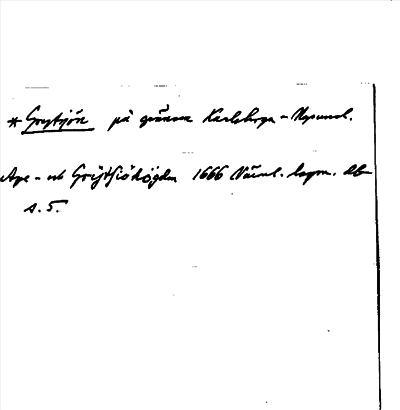 * Grytsjön på gränsen Karlskoga - Nysund.
Ape- och Grÿtsiöhögden 1666 Värml. lagm. db
s. 5.